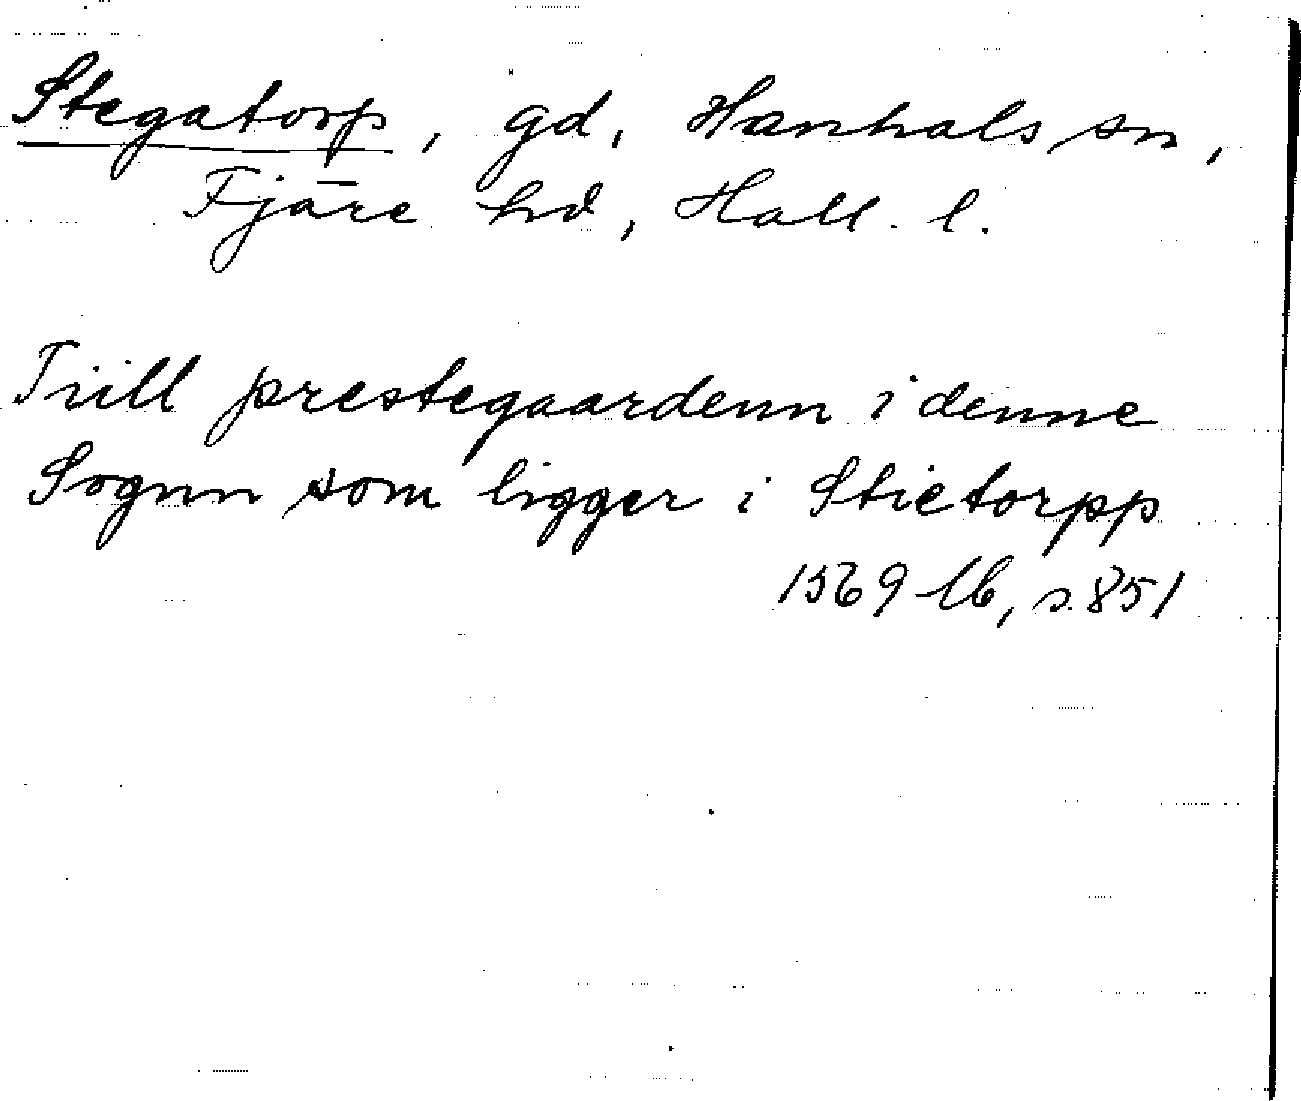 Stegatorp, gd, Hanhals sn,
Fjäre hd, Hall. l.
Tiill prestegaardenn i denne
Sognn som ligger i Stietorpp
1569 lb, s. 851